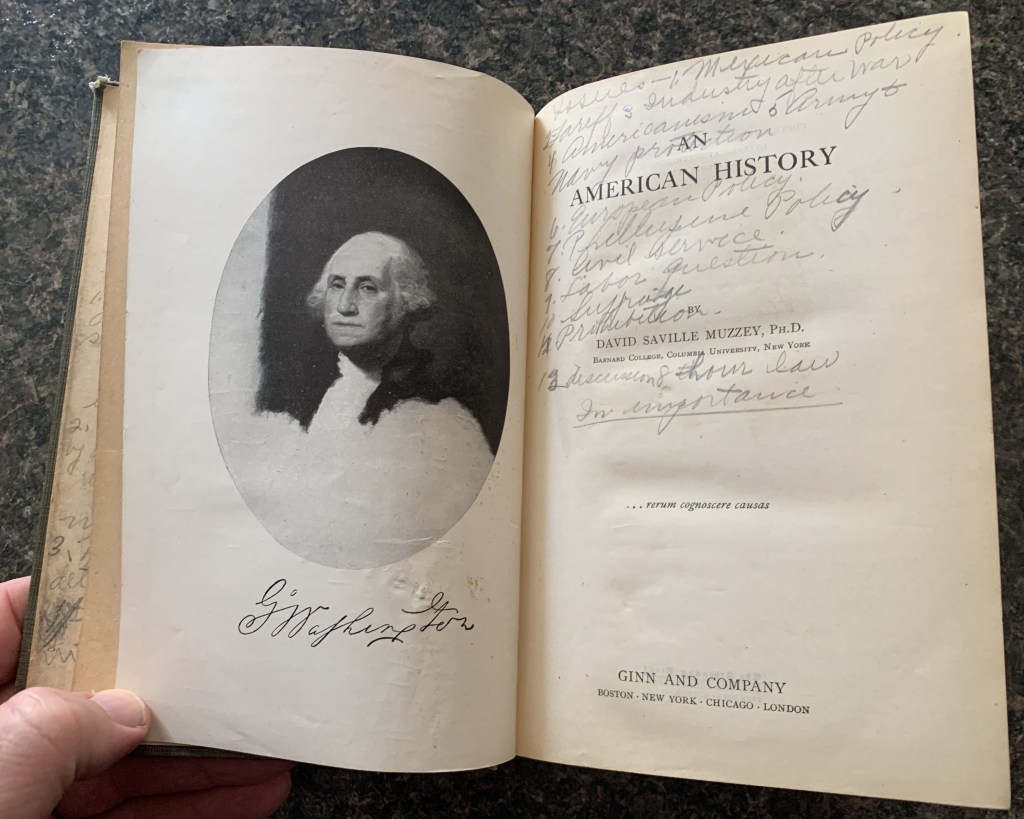 G Washington
Issues - 1. Mexican Policy.
2 Tariff 3 Industry after War
4 Americanism 5 Army &
Navy protection
AN
AMERICAN HISTORY
6. European Policy.
7 Phillupine Policy
8. Civil Service.
9. Labor Question.
10 Suffrage
Prohibition.
BY
DAVID SAVILLE MUZZEY, PH.D.
BARNARD COLLEGE, COLUMBIA UNIVERSITY, NEW YORK
discussion 8 hour law
In importance
... rerum cognoscere causas
GINN AND COMPANY
BOSTON · NEW YORK · CHICAGO · LONDON